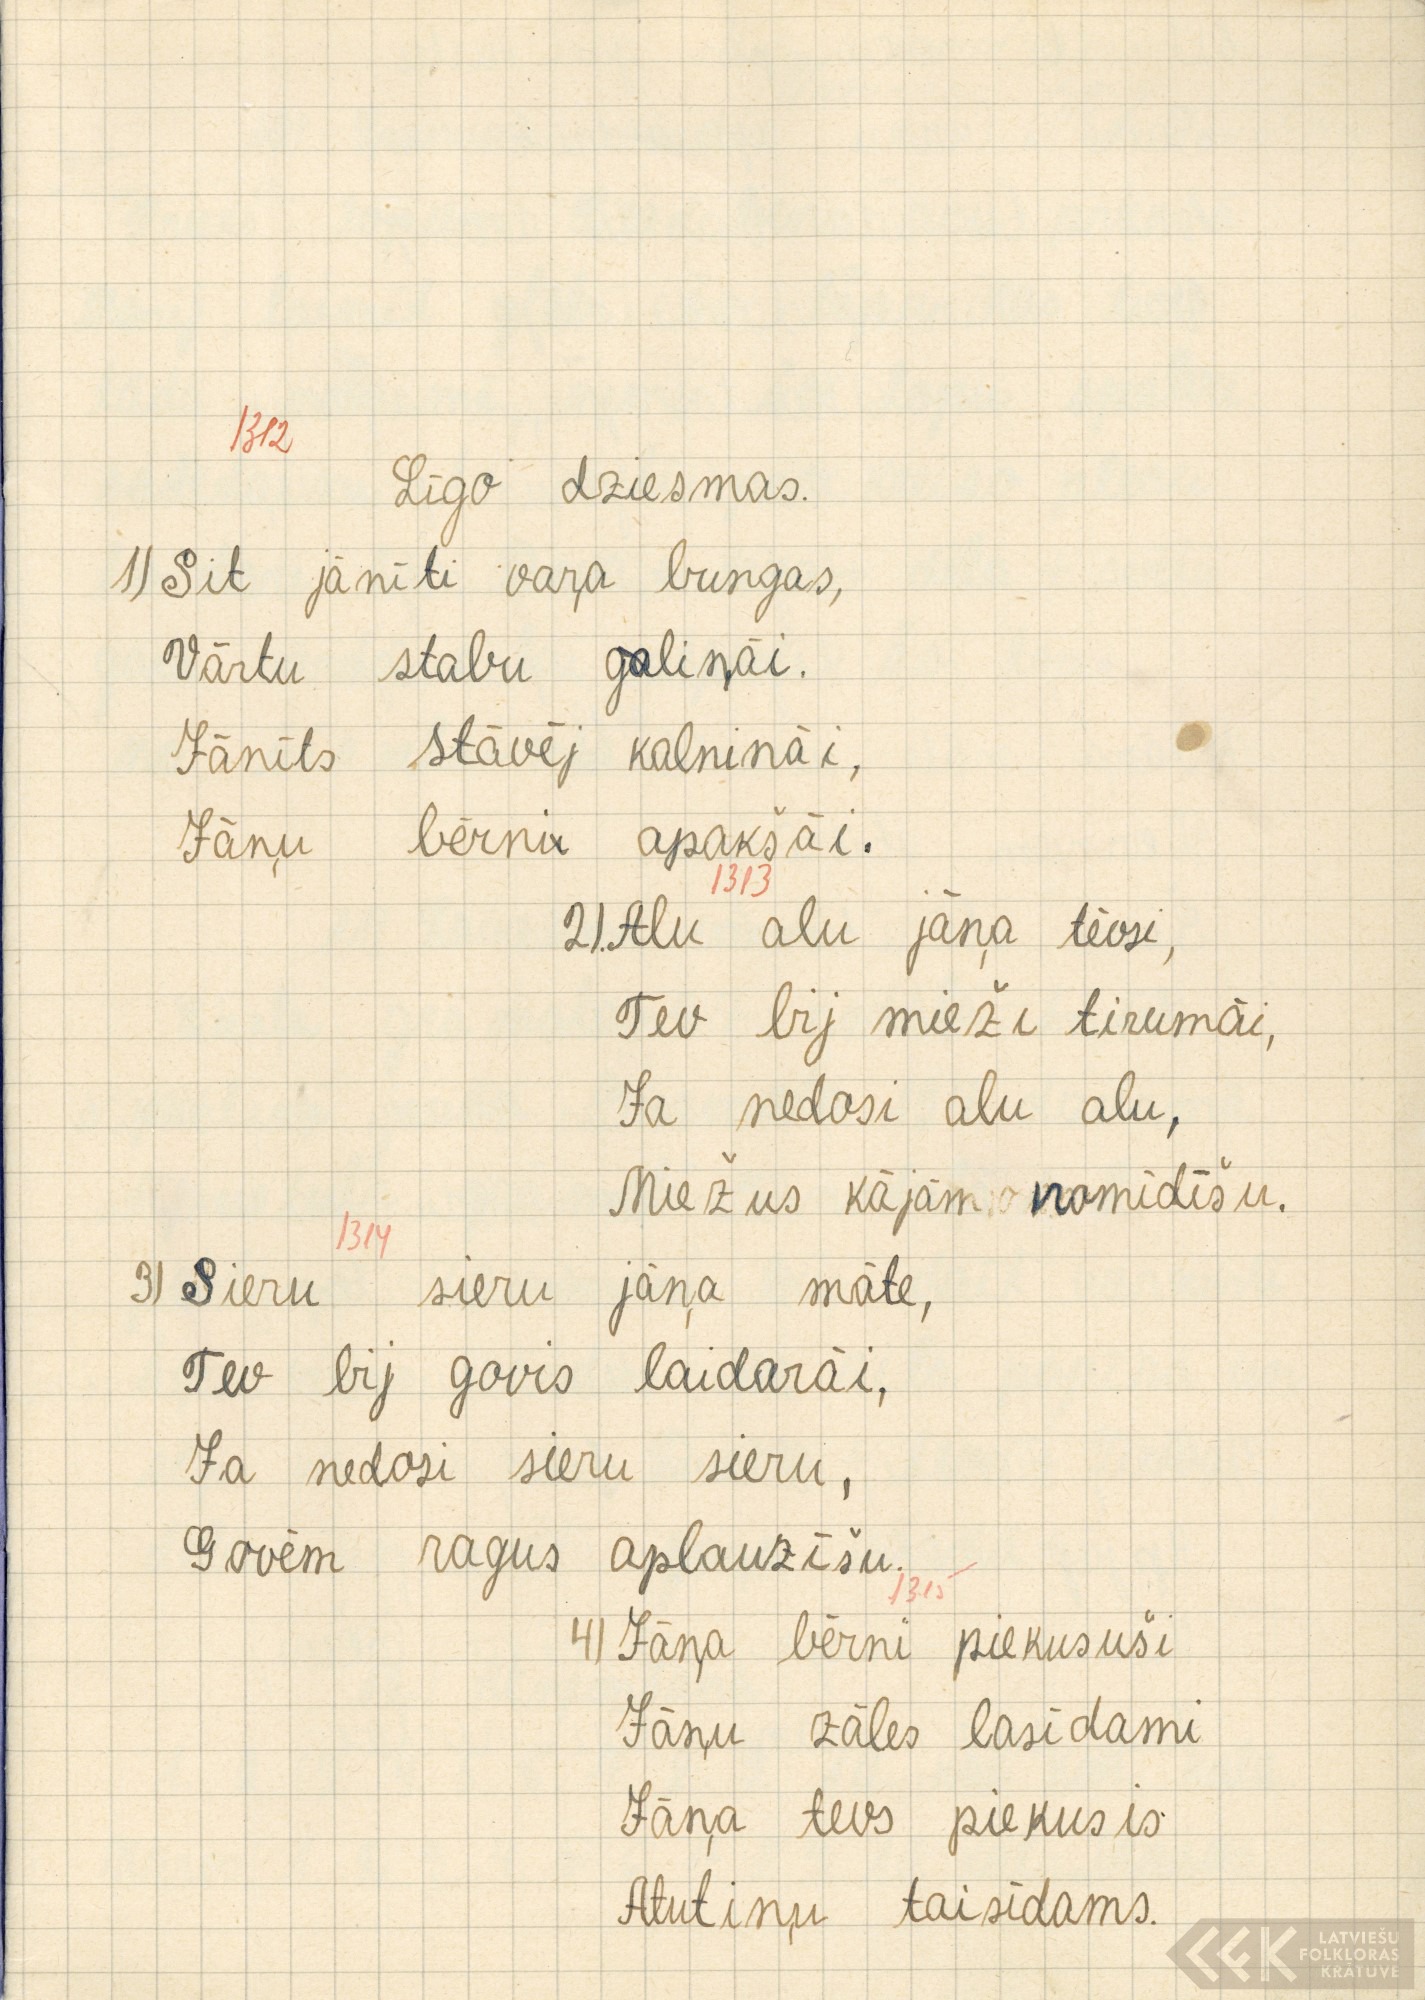 1312
Līgo dziesmas.
1) Sit jānīti vaŗa bungas,
Vārtu stabu galiņāi.
Jānīts stāvēj kalnināi,
Jāņu bērni apakšāi.
1313
2). Alu alu jāņa tēvsi,
Tev bij mieži tirumāi,
Ja nedosi alu alu,
Miežus kājām nomīdīšu.
1314
3) Sieru sieru jāņa māte,
Tev bij govis laidarāi,
Ja nedosi sieru sieru,
Govēm ragus aplauzīšu.
1315
4) Jāņa bērni piekusuši
Jāņu zāles lasīdami
Jāņa tevs piekusis
Alutiņu taisīdams.
LATVIEŠU
FOLKLORAS
KRĀTUVE